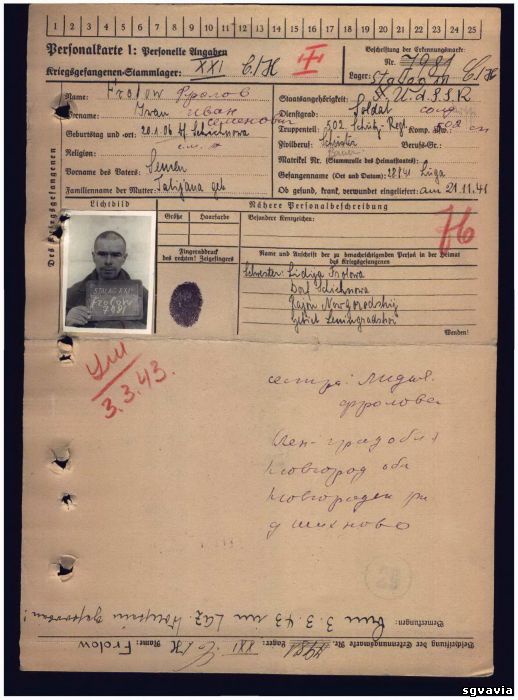 1 2 3 4 5 6 7 8 9 10 11 12 13 14 15 16 17 18 19 20 21 22 23 24 25
Personalkarte I: Personelle Angaben
Kriegsgefangenen-Stammlager: XXI C/H
III
Beschriftung der Erkennungsmarke:
Nr. 7981
Lager: Stalag XXI C/H
Des Kriegsgefangenen
Name: Frolow Фролов
Vorname: Iwan Иван
Семенови
Geburtstag und -ort: 20.1.06 Schichnowa
Religion:
Vorname des Vaters: Semen
Familienname der Mutter: Tatjana geb
Staatsangehörigkeit: U.d.S.S.R
Dienstgrad: Soldat солд
Truppenteil: 502 Schütz. Regt Komp. usw.:
Zivilberuf: Berufs-Gr.:
Matrikel Nr. (Stammrolle des Heimatstaates):
Gefangennahme (Ort und Datum): Luga
Ob gesund, krank, verwundet eingeliefert: am 21.11.41
Lichtbild
Größe
Haarfarbe
Fingerabdruck
des rechten! Zeigefingers
Nähere Personalbeschreibung
Besondere Kennzeichen:
76
Name und Anschrift der zu benachrichtigenden Person in der Heimat
des Kriegsgefangenen
Schwester: Lidija Frolowa
Dorf Schichnowa
Rajon Nowgorodskij
Gebiet Leningradskoi
Wenden!
STALAG XXI
Frolow
7981
Ум
3.3.43.
сестра: Лидия
Фролова
Лен-градоблт
Новгород
Новгородск
д шихново
Bemerkungen: 3.3.43 im Laz.
Beschriftung der Erkennungsmarke Nr. 7981 Lager: XXI C/H Name: Frolow
sgvavia